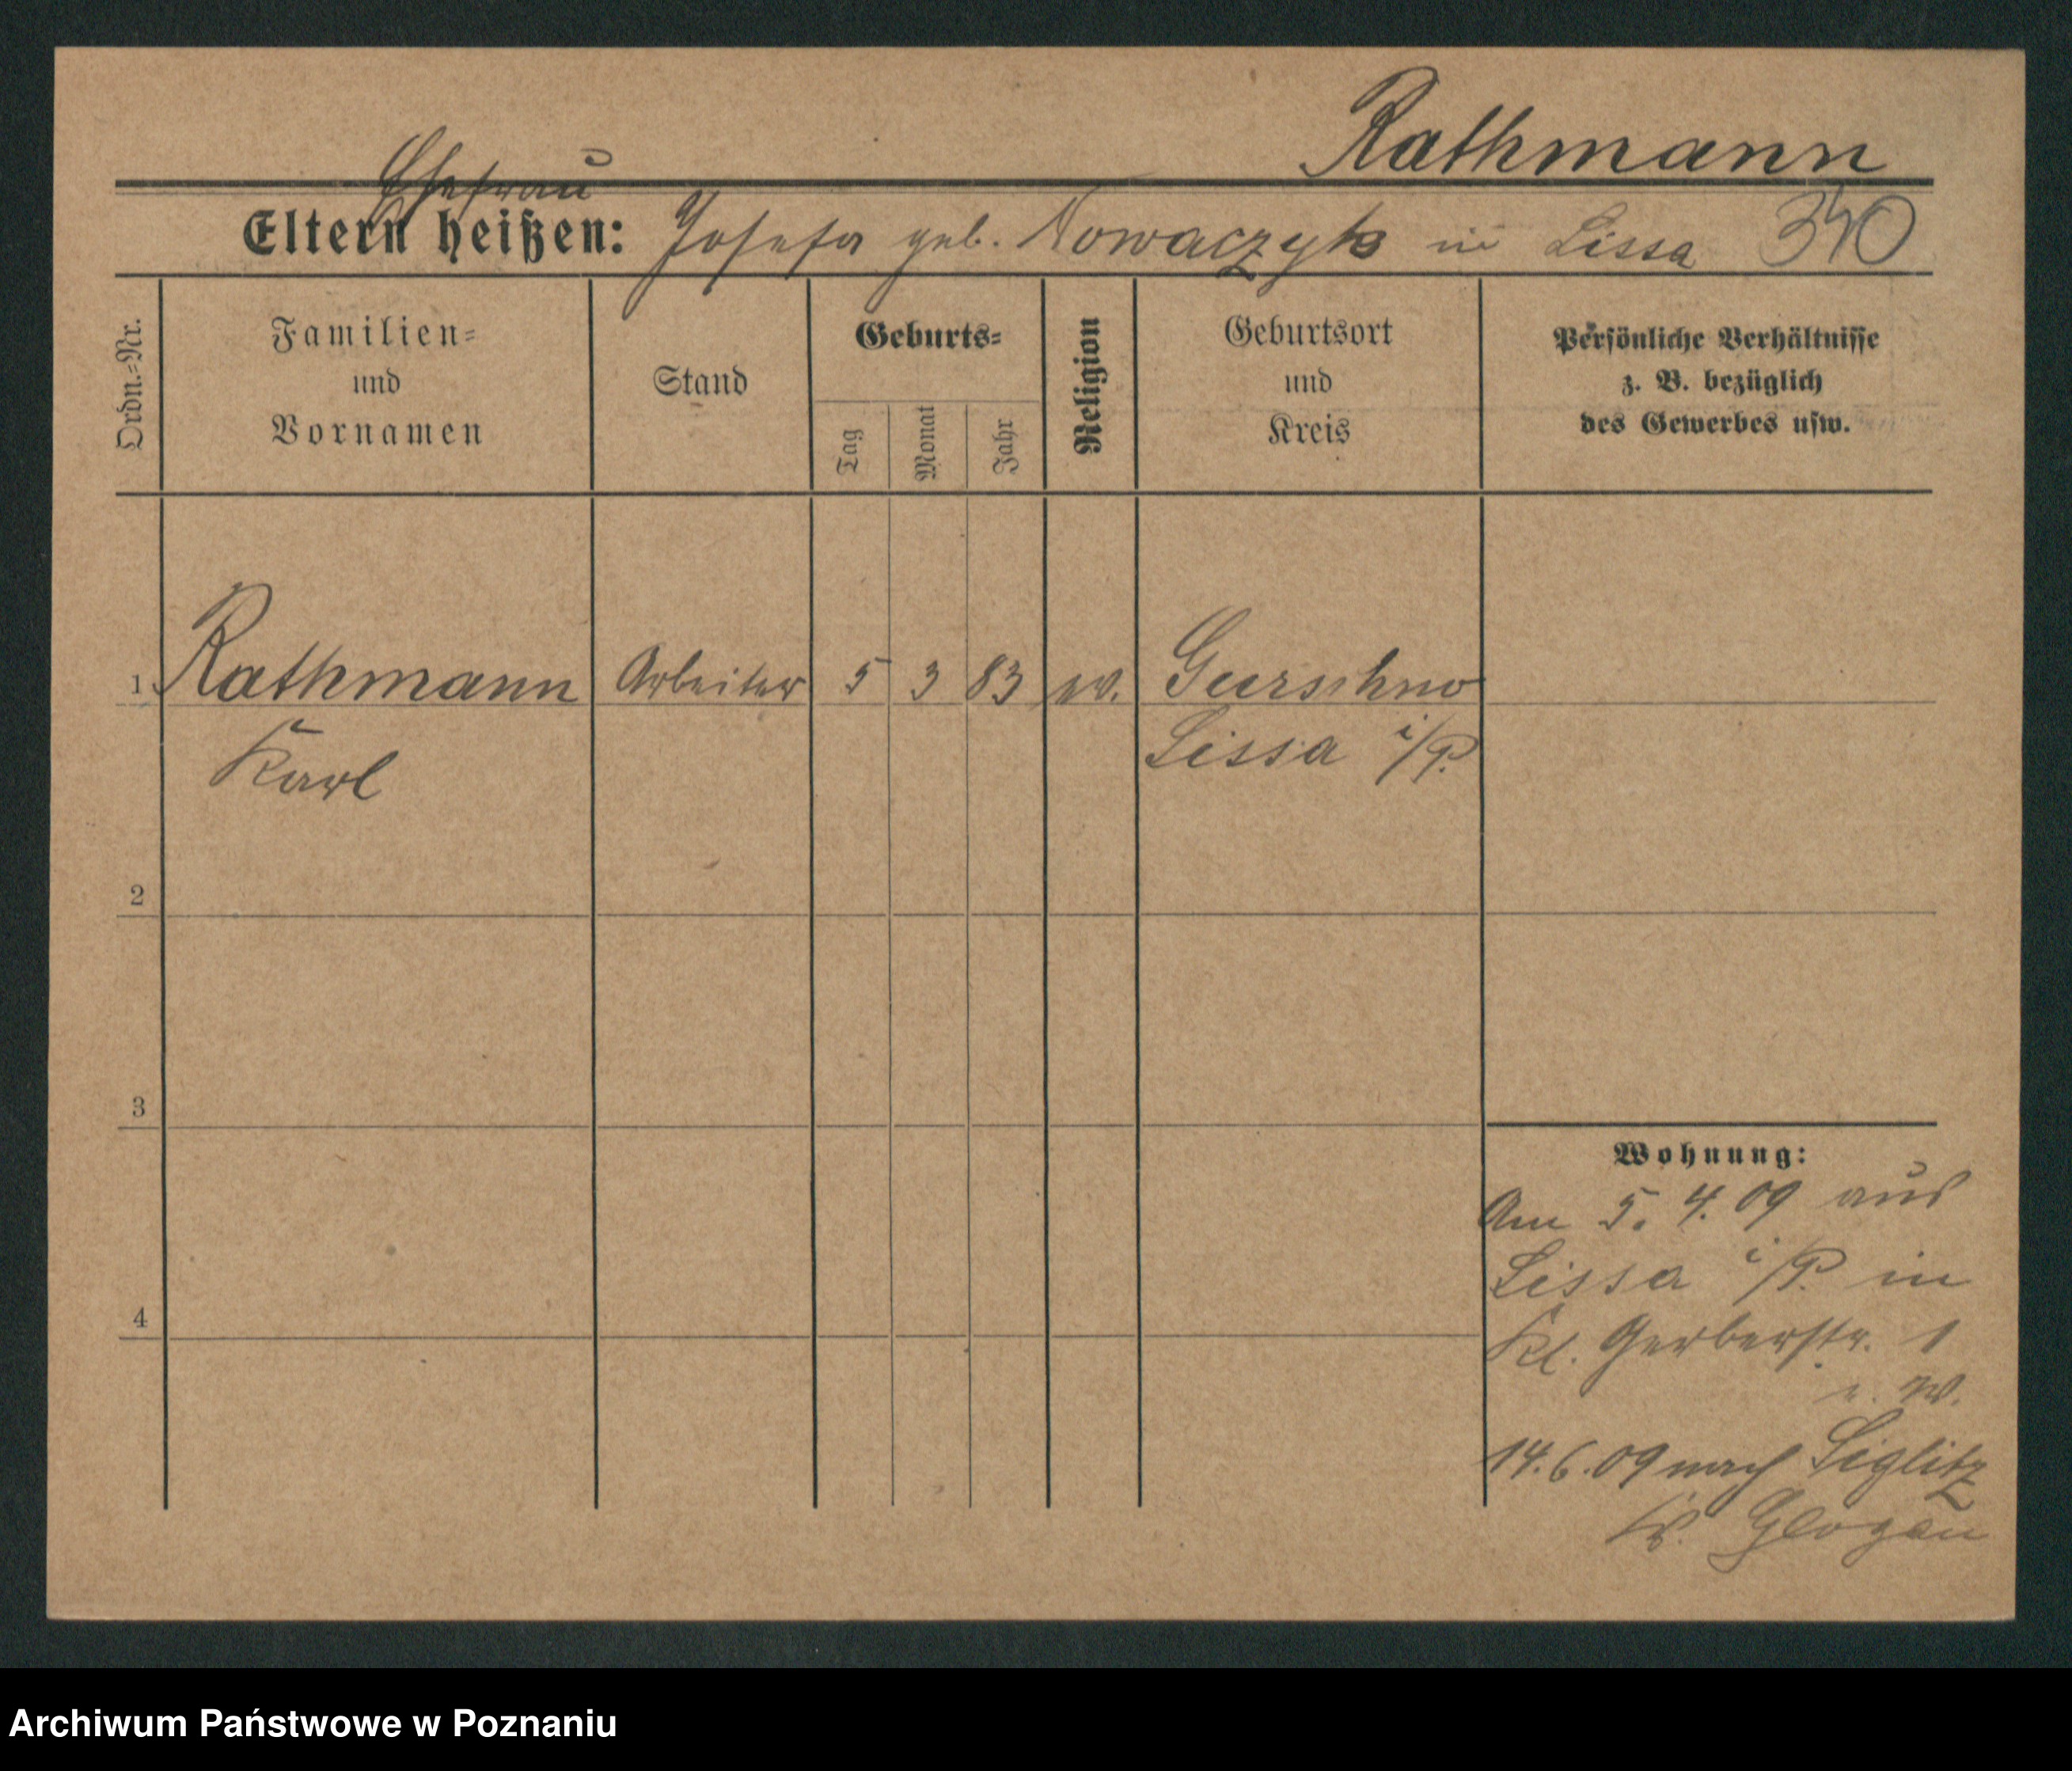 Rathmann
Ehefrau
Eltern heißen: Josefa geb. Nowaczyk in Lissa 340
Ordn.-Nr.
Familien-
und
Vornamen
Stand
Geburts-
Tag
Monat
Jahr
Religion
Geburtsort
und
Kreis
Persönliche Verhältnisse
z. B. bezüglich
des Gewerbes usw.
1 Rathmann Arbeiter 5 3 83 ev. Gurschno
Karl Lissa i/P.
2
3
4
Wohnung:
Am 5. 4. 09 aus
Lissa i/P. in
Kl. Gerberstr. 1
14.6.09 nach Liglitz
Kr. Glogau
Archiwum Państwowe w Poznaniu